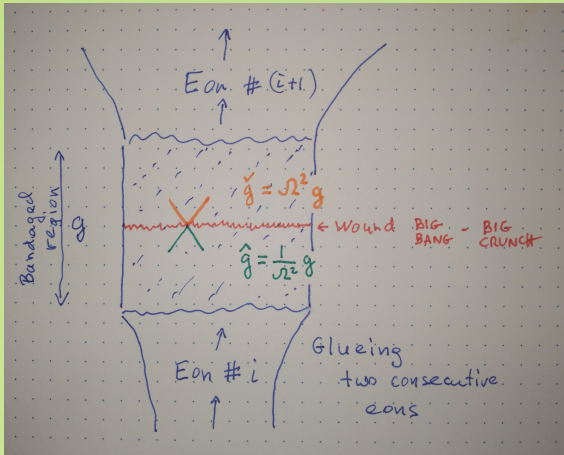 Eon # (i+1)
Bandaged
region
g
ǧ = Ω² g
← Wound BIG BANG - BIG CRUNCH
ĝ = 1/Ω² g
Eon # i
Glueing
two consecutive
eons